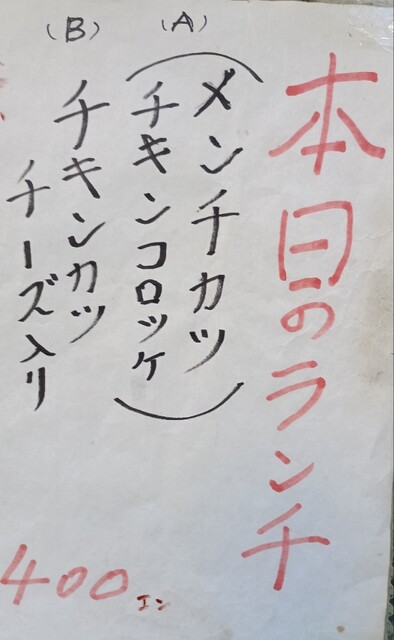 本日のランチ
(A)
メンチカツ
チキンコロッケ
(B)
チキンカツ
チーズ入り
400エン